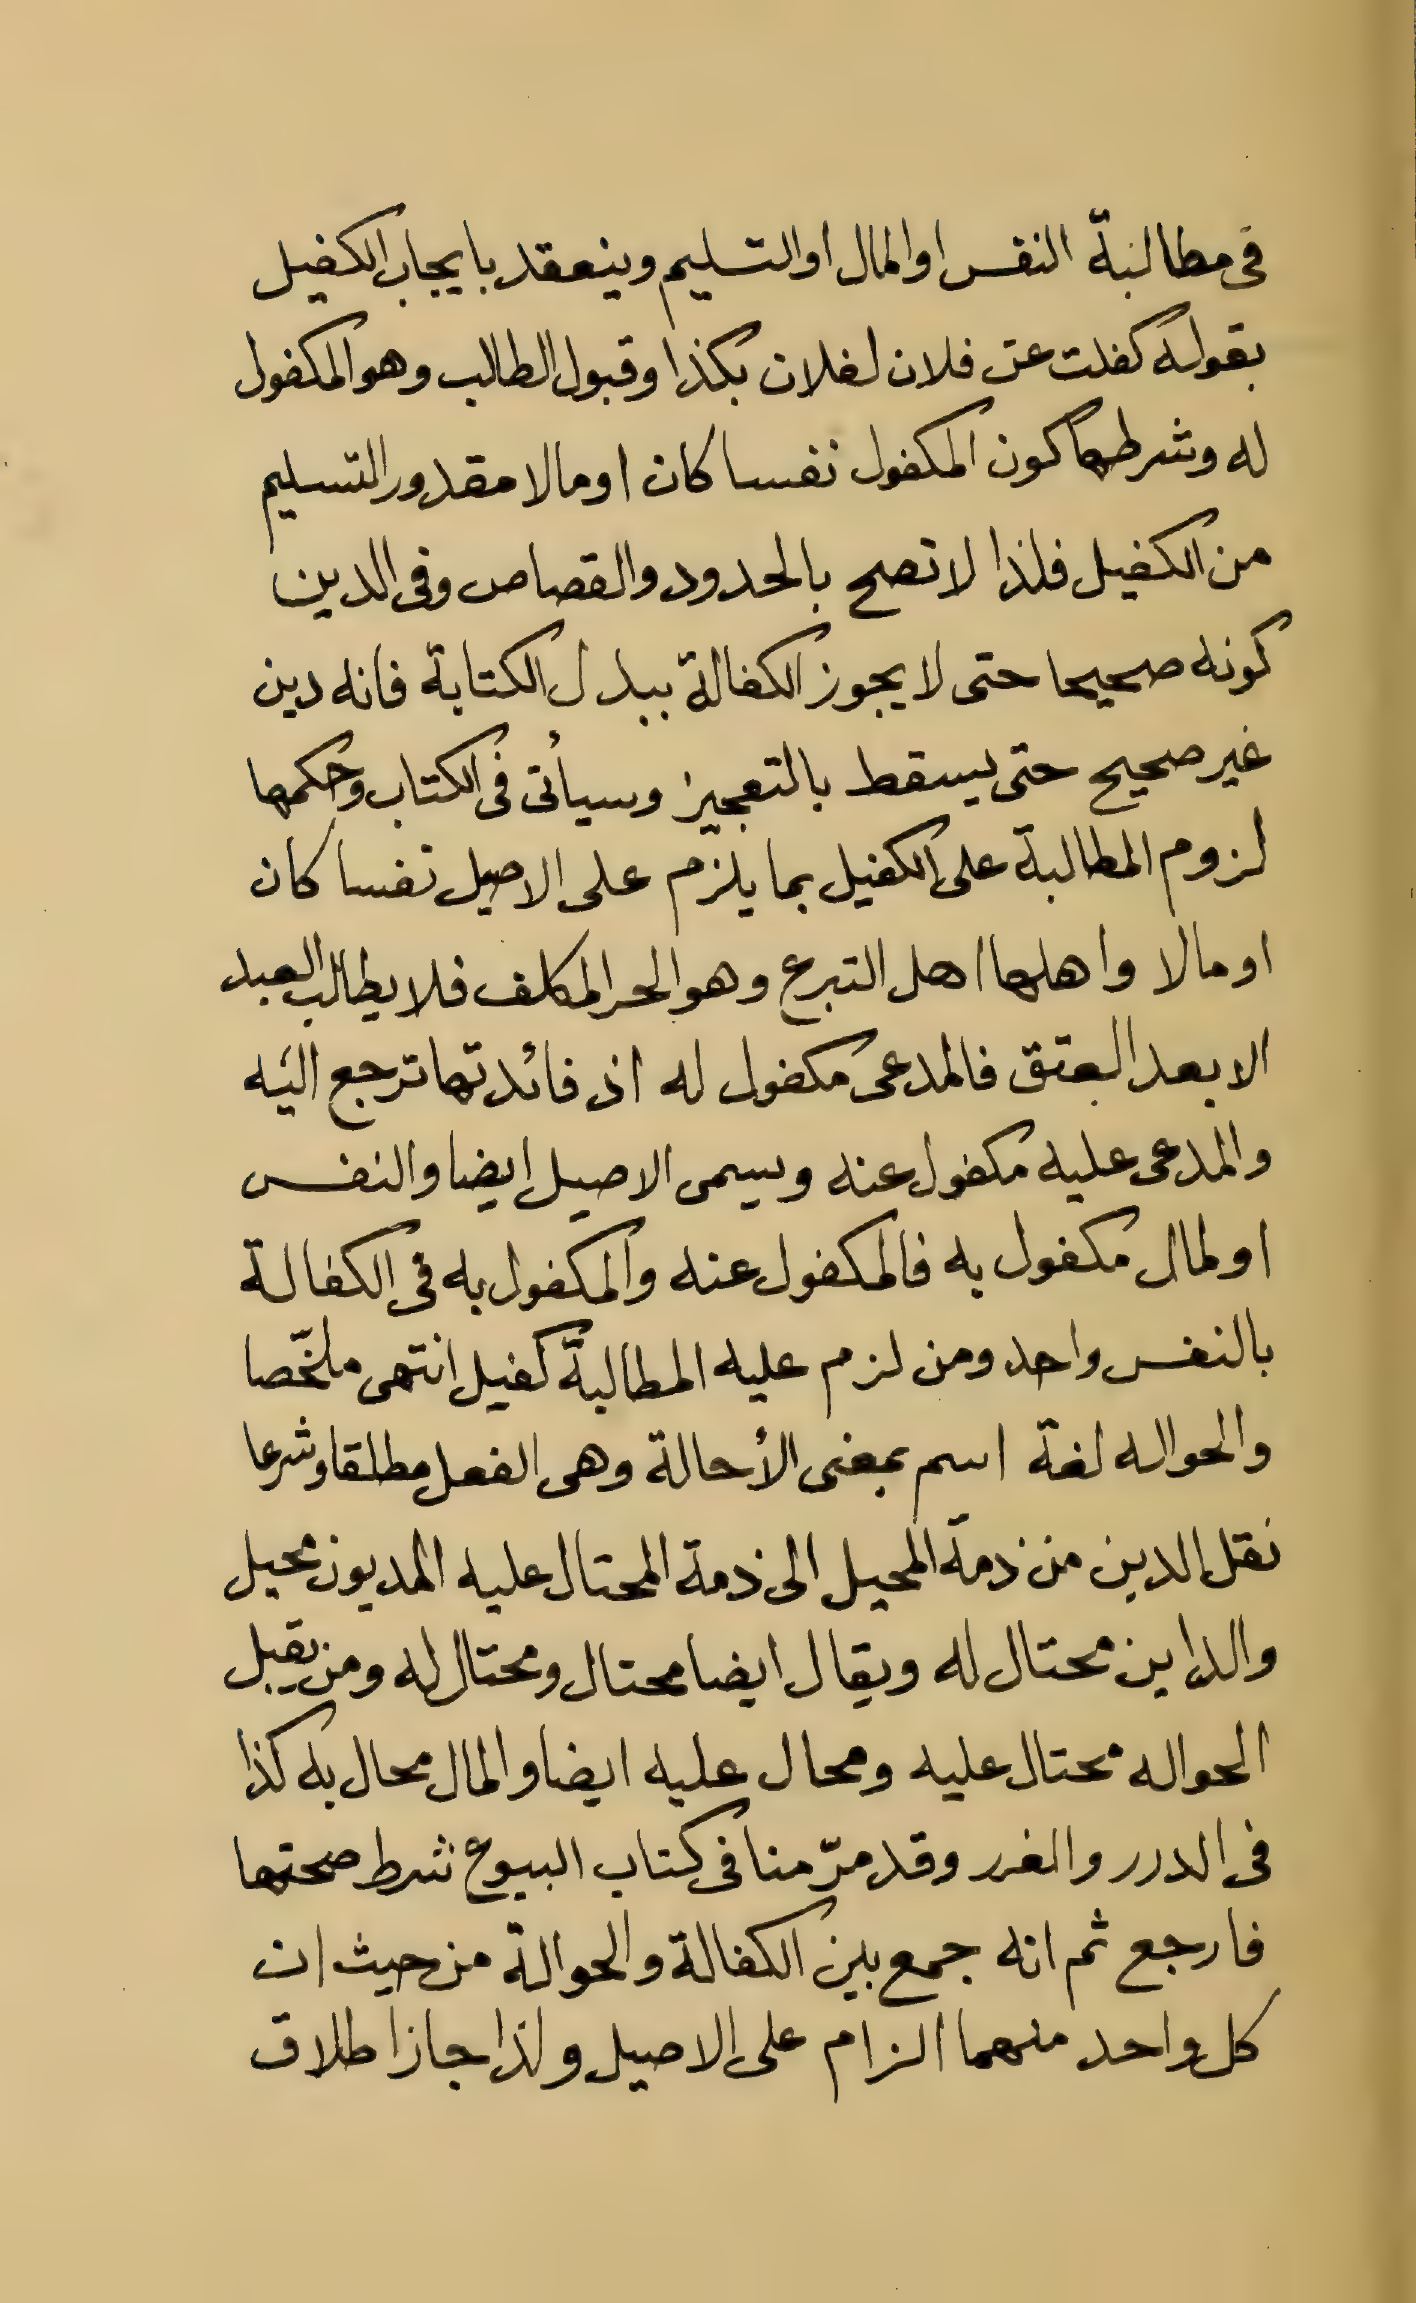 فى مطالبة النفس او المال او التسليم وينعقد بايجاب الكفيل
بقوله كفلت عن فلان لفلان بكذا وقبول الطالب وهو المكفول
له وشرطها كون المكفول نفسا كان او مالا مقدور التسليم
من الكفيل فلذا لا تصح بالحدود والقصاص وفى الدين
كونه صحيحا حتى لا يجوز الكفالة ببدل الكتابة فانه دين
غير صحيح حتى يسقط بالتعجيز وسيأتى فى الكتاب وحكمها
لزوم المطالبة على الكفيل بما يلزم على الاصيل نفسا كان
او مالا واهلها اهل التبرع وهو الحر المكلف فلا يطالب العبد
الا بعد العتق فالمدعى مكفول له اذ فائدتها ترجع اليه
والمدعى عليه مكفول عنه ويسمى الاصيل ايضا والنفس
او لمال مكفول به فالمكفول عنه والمكفول به فى الكفالة
بالنفس واحد ومن لزم عليه المطالبة كفيل انتهى ملخّصا
والحواله لغة اسم بمعنى الأحالة وهى الفعل مطلقا وشرعا
نقل الدين من ذمة المحيل الى ذمة المحتال عليه المديون محيل
والداين محتال له ويقال ايضا محتال ومحتال له ومن يقبل
الحواله محتال عليه ومحال عليه ايضا والمال محال به كذا
فى الدرر والغرر وقد مرّ منا فى كتاب البيوع شرط صحتها
فارجع ثم انه جمع بين الكفالة والحوالة من حيث ان
كل واحد منهما الزام على الاصيل ولذا جاز اطلاق